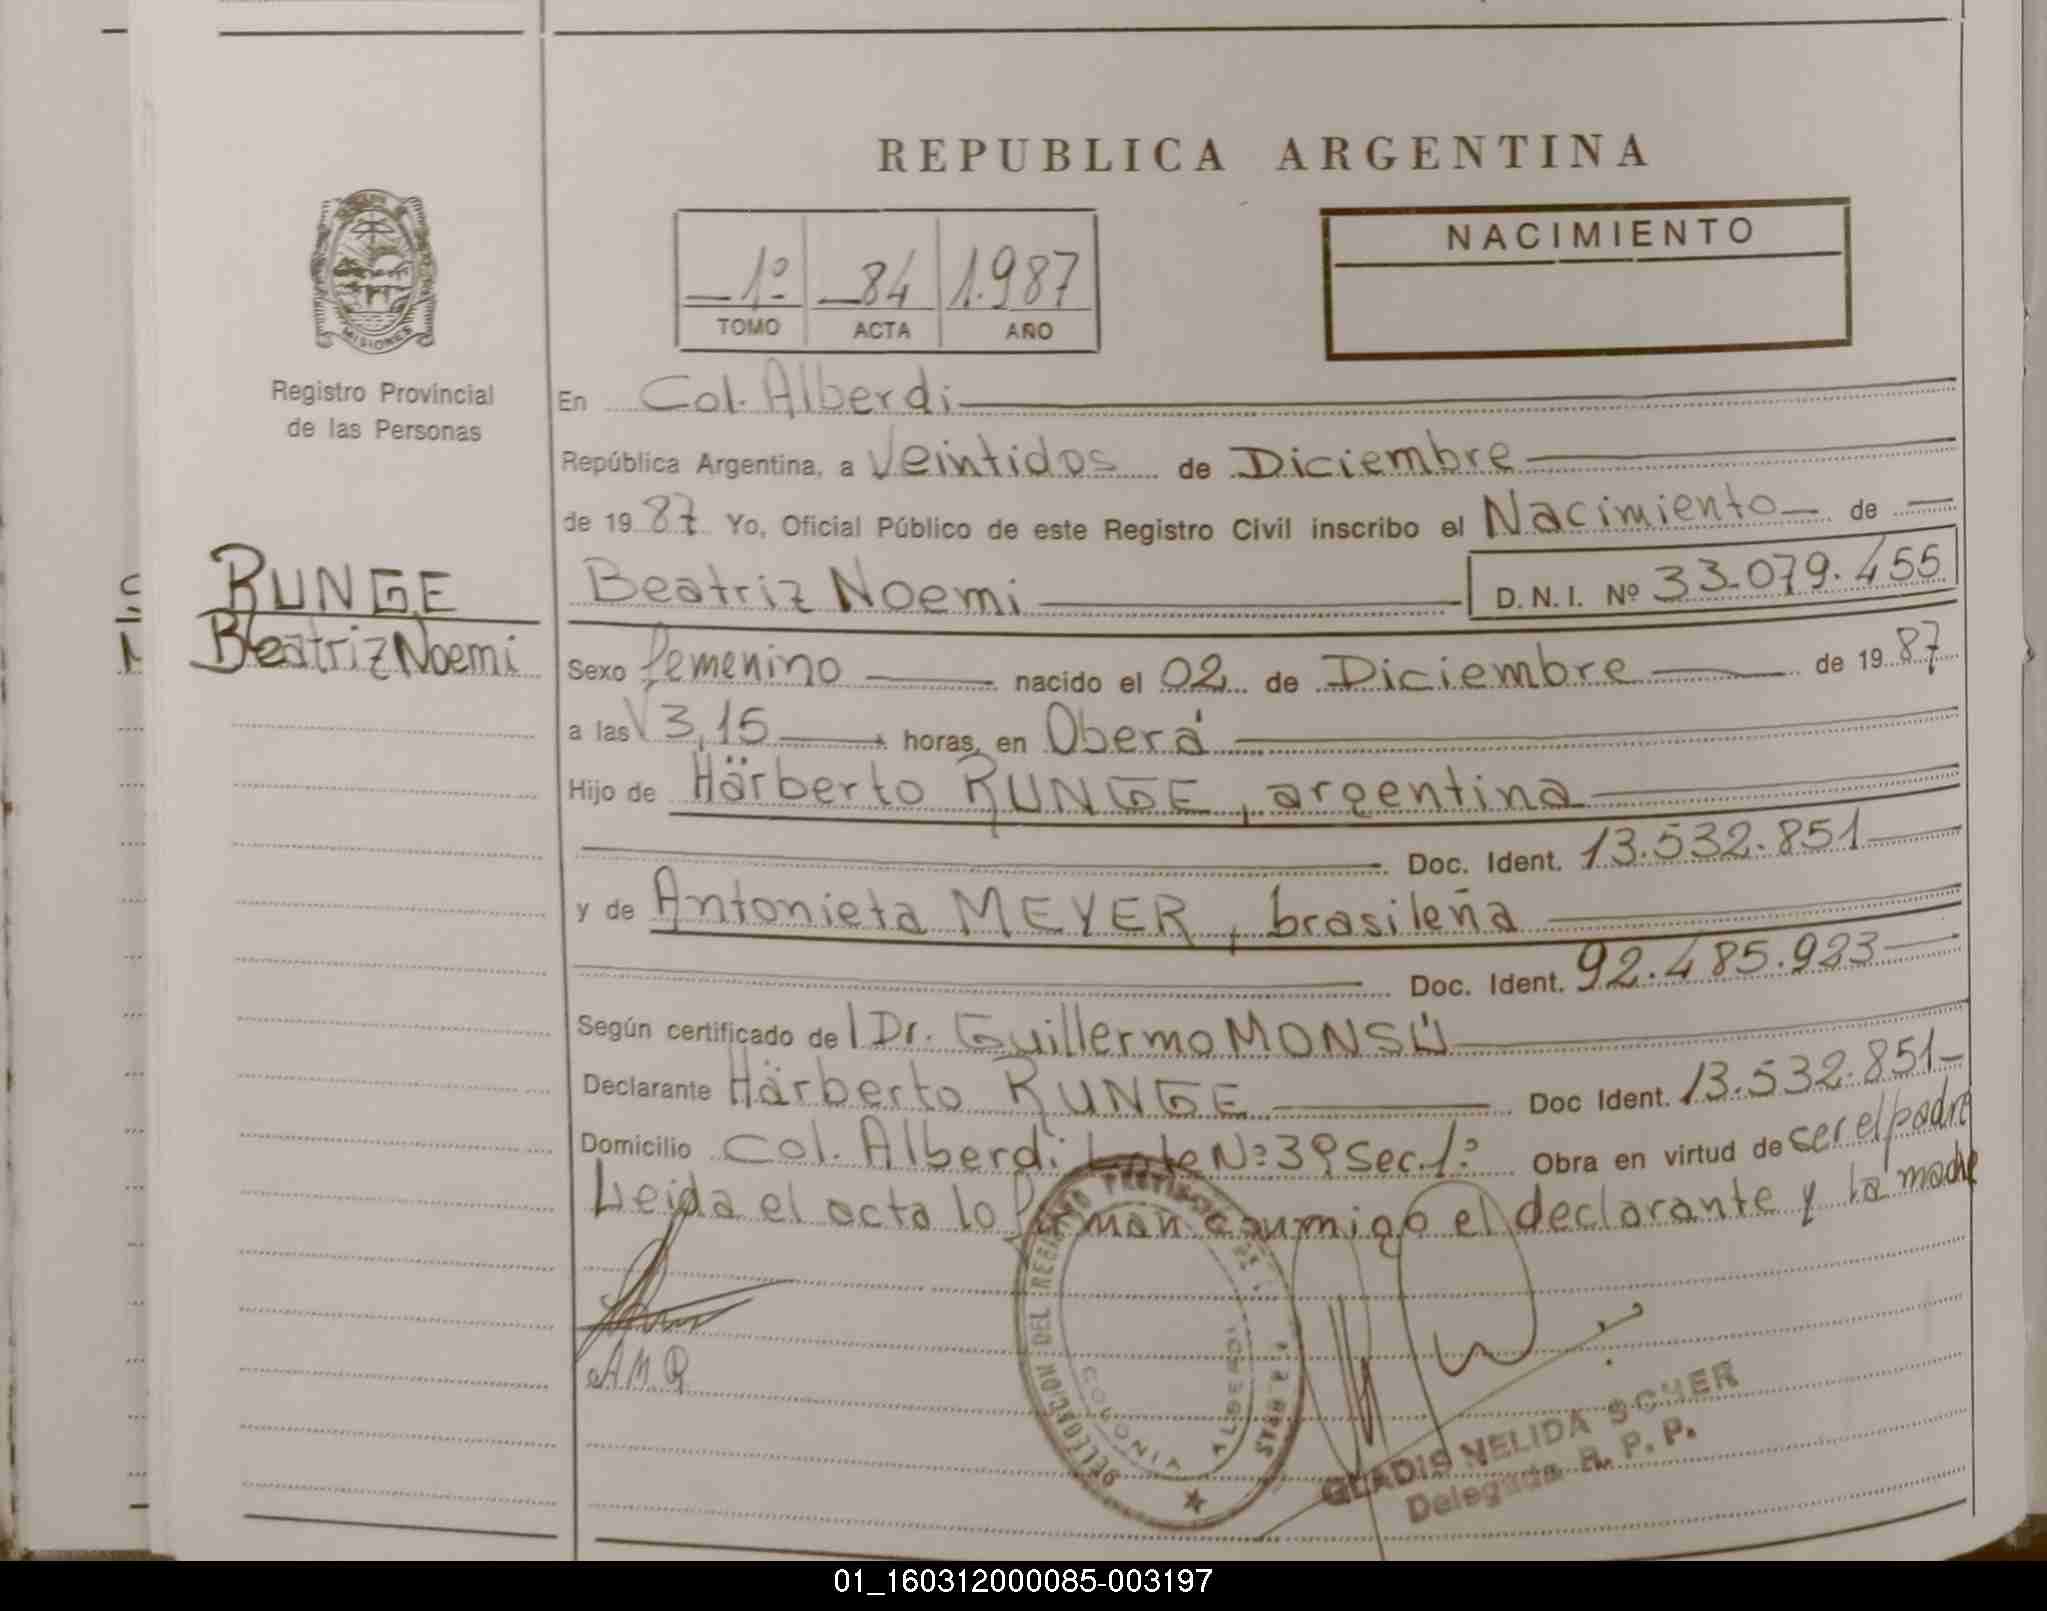 REPUBLICA ARGENTINA
NACIMIENTO
1º 84 1.987
TOMO ACTA AÑO
MISIONES
Registro Provincial
de las Personas
En Col. Alberdi
República Argentina, a Veintidos de Diciembre
de 1987 Yo, Oficial Público de este Registro Civil inscribo el Nacimiento de
RUNGE
Beatriz Noemi
Beatriz Noemi D.N.I. Nº 33.079.455
Sexo femenino nacido el 02 de Diciembre de 1987
a las 3,15 horas, en Oberá
Hijo de Härberto RUNGE, argentina
Doc. Ident. 13.532.851
y de Antonieta MEYER, brasileña
Doc. Ident. 92.485.923
Según certificado del Dr. Guillermo MONSÙ
Declarante Härberto RUNGE Doc Ident. 13.532.851
Domicilio Col. Alberdi Lote Nº 39 Sec. 1º Obra en virtud de ser el padre
Leida el acta lo firman conmigo el declarante y la madre
A.M.R
DELEGACION DEL REGISTRO PROVINCIAL DE LAS PERSONAS
COLONIA ALBERDI
GLADIS NELIDA SCHER
Delegada R. P. P.
01_160312000085-003197